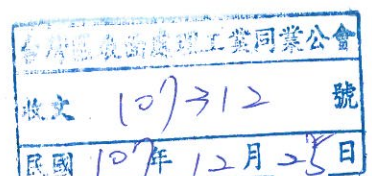 台灣區表面處理工業同業公會
收文 107312 號
民國 107年 12月 25日